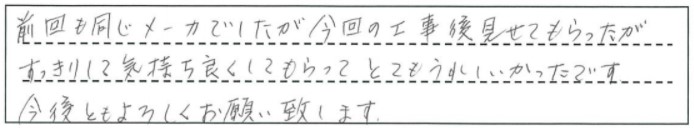 前回も同じメーカでしたが今回の工事後見せてもらったが
すっきりして気持ち良くしてもらって とてもうれしいかったです
今後ともよろしくお願い致します.